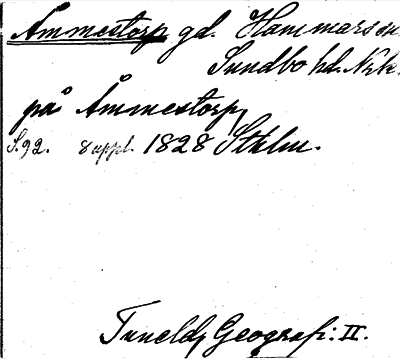 Åmmestorp gd. Hammars sn
Sundbo hd. Nrk.
på Åmmestorp,
S. 92. 8 uppl. 1828 Sthlm.
Tunelds Geografi: II.